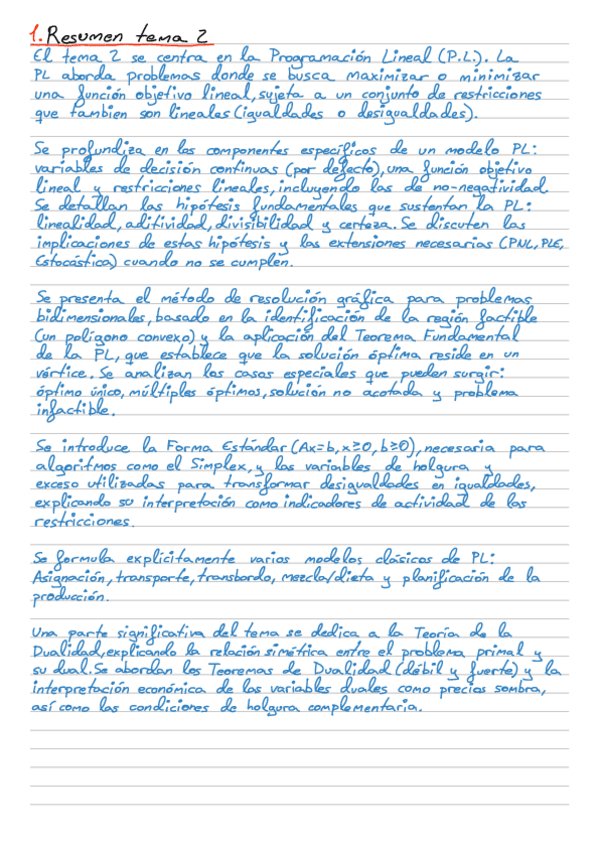 1. Resumen tema 2
El tema 2 se centra en la Programación Lineal (P.L.). La
PL aborda problemas donde se busca maximizar o minimizar
una función objetivo lineal, sujeta a un conjunto de restricciones
que tambien son lineales (igualdades o desigualdades).
Se profundiza en los componentes específicos de un modelo PL:
variables de decisión continuas (por defecto), una función objetivo
lineal y restricciones lineales, incluyendo las de no-negatividad.
Se detallan las hipótesis fundamentales que sustentan la PL:
linealidad, aditividad, divisibilidad y certeza. Se discuten las
implicaciones de estas hipótesis y las extensiones necesarias (PNL, PLE,
Estocástica) cuando no se cumplen.
Se presenta el método de resolución gráfica para problemas
bidimensionales, basado en la identificación de la región factible
(un polígono convexo) y la aplicación del Teorema Fundamental
de la PL, que establece que la solución óptima reside en un
vértice. Se analizan los casos especiales que pueden surgir:
óptimo único, múltiples óptimos, solución no acotada y problema
infactible.
Se introduce la Forma Estándar (Ax=b, x≥0, b≥0), necesaria para
algoritmos como el Simplex, y las variables de holgura y
exceso utilizadas para transformar desigualdades en igualdades,
explicando su interpretación como indicadores de actividad de las
restricciones.
Se formula explícitamente varios modelos clásicos de PL:
Asignación, transporte, transbordo, mezcla/dieta y planificación de la
producción.
Una parte significativa del tema se dedica a la Teoría de la
Dualidad, explicando la relación simétrica entre el problema primal y
su dual. Se abordan los Teoremas de Dualidad (débil y fuerte) y la
interpretación económica de las variables duales como precios sombra,
así como las condiciones de holgura complementaria.